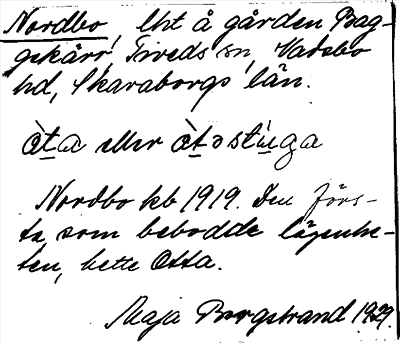 Nordbo, lht å gården Bag-
gekärr, Tiveds sn, Vadsbo
hd, Skaraborgs län.
òta eller òtəstùga
Nordbo kb 1919. Den förs-
ta, som bebodde lägenhe-
ten, hette Otta.
Maja Bergstrand 1929.